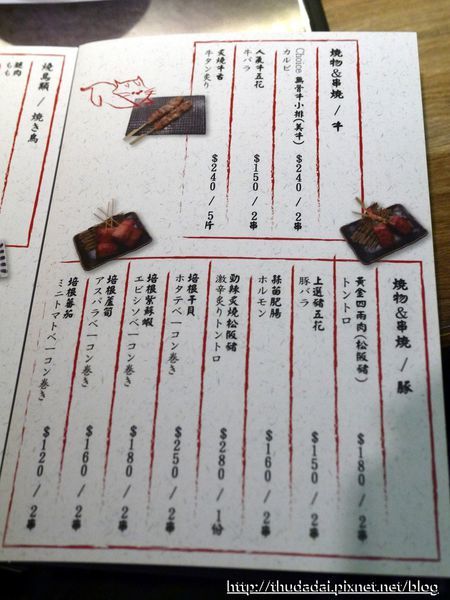 燒物&串燒 / 牛
Choice 無骨牛小排(美牛)
カルビ
$240 / 2串
人氣牛五花
牛バラ
$150 / 2串
炙燒牛舌
牛タン炙り
$240 / 5片
燒物&串燒 / 豚
黃金四兩肉(松阪豬)
トントロ
$180 / 2串
上選豬五花
豚バラ
$150 / 2串
蒜苗肥腸
ホルモン
$160 / 2串
勁辣炙燒松阪豬
激辛炙りトントロ
$280 / 1份
培根干貝
ホタテベーコン巻き
$250 / 2串
培根紫蘇蝦
エビシソベーコン巻き
$180 / 2串
培根蘆筍
アスパラベーコン巻き
$160 / 2串
培根蕃茄
ミニトマトベーコン巻き
$120 / 2串
燒鳥類 / 焼き鳥
腿肉
もも
http://thudadai.pixnet.net/blog